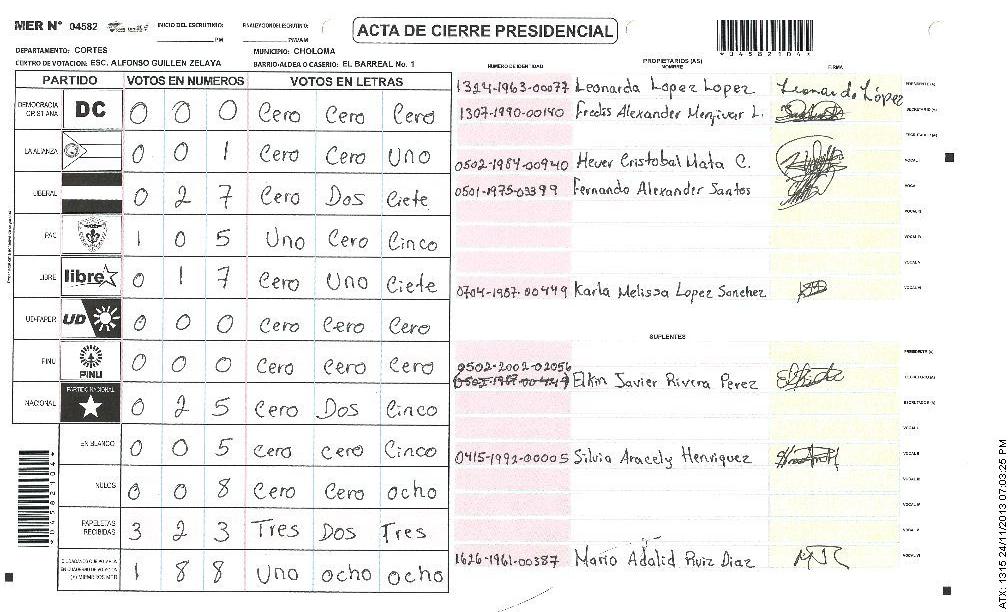 MER N° 04582 INICIO DEL ESCRUTINIO: PM FINALIZACION DEL ESCRUTINIO: PM/AM ACTA DE CIERRE PRESIDENCIAL
*04582104*
DEPARTAMENTO: CORTES MUNICIPIO: CHOLOMA
CENTRO DE VOTACION: ESC. ALFONSO GUILLEN ZELAYA BARRIO-ALDEA O CASERIO: EL BARREAL No. 1
PARTIDO VOTOS EN NUMEROS VOTOS EN LETRAS
DEMOCRACIA CRISTIANA DC 0 0 0 Cero Cero Cero
LA ALIANZA 0 0 1 Cero Cero Uno
LIBERAL 0 2 7 Cero Dos Ciete
PAC 1 0 5 Uno Cero Cinco
LIBRE libre 0 1 7 Cero Uno Ciete
UD-FAPER UD 0 0 0 Cero Cero Cero
PINU PINU 0 0 0 Cero Cero Cero
NACIONAL PARTIDO NACIONAL 0 2 5 Cero Dos Cinco
EN BLANCO 0 0 5 Cero cero Cinco
NULOS 0 0 8 Cero Cero ocho
PAPELETAS RECIBIDAS 3 2 3 Tres Dos Tres
1 8 8 Uno ocho ocho
*04582104*
PROPIETARIOS (AS)
NUMERO DE IDENTIDAD NOMBRE FIRMA
1324-1963-00077 Leonarda Lopez Lopez Leonarda López PRESIDENTE (A)
1307-1990-00140 Fredis Alexander Menjivar L. SECRETARIO (A)
ESCRUTADOR (A)
0502-1984-00940 Hever Cristobal Mata C. VOCAL I
0501-1975-03399 Fernando Alexander Santos
VOCAL III
VOCAL IV
VOCAL V
0704-1987-00449 Karla Melissa Lopez Sanchez VOCAL VI
SUPLENTES
PRESIDENTE (A)
0502-2002-02056
Elkin Javier Rivera Perez SECRETARIO (A)
ESCRUTADOR (A)
VOCAL I
0415-1992-00005 Silvia Aracely Henriquez VOCAL II
VOCAL III
VOCAL IV
VOCAL V
1626-1961-00387 Mario Adalid Ruiz Diaz VOCAL VI
ATX: 1315 24/11/2013 07:03:25 PM